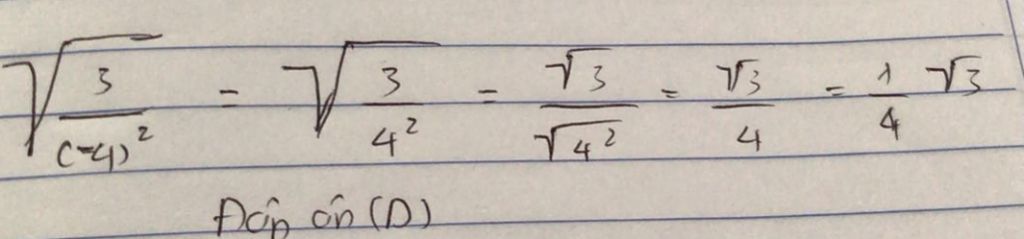 √(3/(-4)²) = √(3/4²) = √3/√4² = √3/4 = 1/4 √3
Đáp án (D)